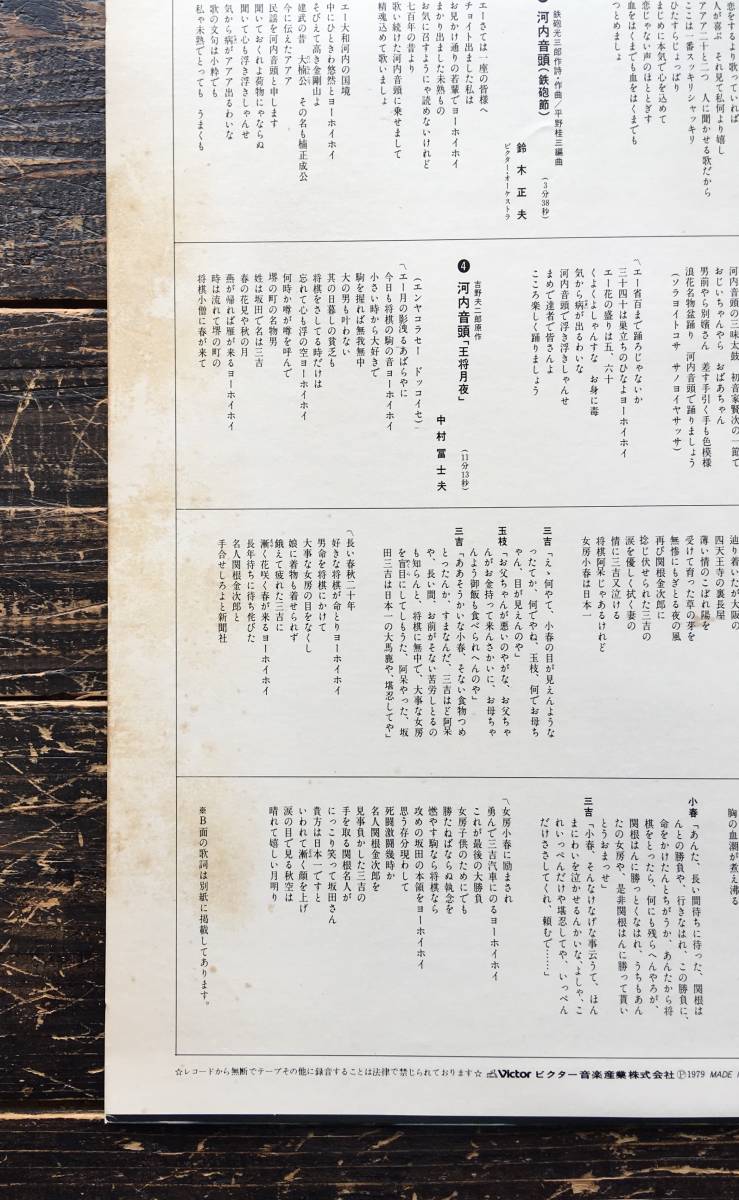 恋をするより歌っていれば
人が喜ぶ それ見て私何より嬉し
アアア二十と二つ 人に聞かせる歌だから
ここは一番スッキリシャッキリ
ひたすらじょっぱり
まじめに本気で心を込めて
恋じゃない声のほとゝぎす
血をはくまでも血をはくまでも
つとめましょ
河内音頭(鉄砲節)
鉄砲光三郎作詩・作曲/平野桂三編曲
鈴木正夫
ビクター・オーケストラ
(3分38秒)
エーさては一座の皆様へ
チョイト出ました私は
お見かけ通りの若輩でヨーホイホイ
まかり出ました未熟もの
お気に召すようにゃ読めないけれど
七百年の昔より
歌い続けた河内音頭に乗せまして
精魂込めて歌いましょ
エー大和河内の国境
中にひときわ悠然とヨーホイホイ
そびえて高き金剛山よ
建武の昔 大楠公 その名も楠正成公
今に伝えたアアア
民謡を河内音頭と申します
聞いておくれよ荷物にゃならぬ
聞いて心も浮き浮きしゃんせ
気から病がアアア出るわいな
歌の文句は小粋でも
私ゃ未熟でとっても うまくも
河内音頭の三味太鼓 初音家賢次の一節で
おじいちゃんやら おばあちゃん
男前やら別嬪さん 差す手引く手も色模様
浪花名物盆踊り 河内音頭で踊りましょう
(ソラヨイトコサ サノヨイヤサッサ)
〽エー省百まで踊ろじゃないか
三十四十は巣立ちのひなよヨーホイホイ
エー花の盛りは五、六十
くよくよしゃんすな お身に毒
気から病が出るわいな
河内音頭で浮き浮きしゃんせ
まめで達者で皆さんよ
こころ楽しく踊りましょう
❹ 河内音頭「王将月夜」
吉野夫二郎原作
中村冨士夫
(11分13秒)
(エンヤコラセー ドッコイセ)
〽エー月の影洩るあばらやに
今日も将棋の駒の音ヨーホイホイ
小さい時から大好きで
駒を握れば無我無中
大の男も叶わない
其の日暮しの貧乏も
将棋をさしてる時だけは
忘れて心も浮の空ヨーホイホイ
何時か噂が噂を呼んで
堺の町の名物男
姓は坂田で名は三吉
春の花見や秋の月
燕が帰れば雁が来るヨーホイホイ
時は流れて堺の町の
将棋小僧に春が来て
辿り着いたが大阪の
四天王寺の裏長屋
薄い情のこぼれ陽を
受けて育った草の芽を
無惨にもぎとる夜の風
再び関根金次郎に
捻じ伏せられた三吉の
涙を優しく拭く妻の
情に三吉又泣ける
将棋阿呆じゃあるけれど
女房小春は日本一
三吉「えゝ何やて、小春の目が見えんような
ったてか、何でやね、玉枝、何でお母ち
ゃん、目が見えんのや」
玉枝「お父ちゃんが悪いのやがな、お父ちゃ
んがお金持って来んさかいに、お母ちゃ
んよう御飯も食べられへんのや」
三吉「ああそうかいな小春、そない食物つめ
とったんか、すまなんだ、三吉はど阿呆
や、長い間、お前がそない苦労しとるの
も知らんと、将棋に無中で、大事な女房
を盲目にしてしもうた、阿呆やった、坂
田三吉は日本一の大馬鹿や、堪忍してや」
〽長い春秋二十年
好きな将棋が命とりヨーホイホイ
男命を将棋にかけて
大事な女房の目をなくし
娘に着物も着せられず
餓えて疲れた三吉に
漸く花咲く春が来るヨーホイホイ
長年待ちに待ち侘びた
名人関根金次郎と
手合せしろよと新聞社
胸の血潮が煮え沸る
小春「あんた、長い間待ちに待った、関根は
んとの勝負や、行きなはれ、この勝負に、
命をかけたんとちがうか、あんたから将
棋をとったら、何にも残らへんやろが、
関根はんに勝っとくなはれ、うちもあん
たの女房や、是非関根はんに勝って貰い
とうおまっせ」
三吉「小春、そんなけなげな事云うて、ほん
まにわいを泣かせるんかいな、よしゃ、こ
れいっぺんだけや堪忍してや、いっぺん
だけささしてくれ、頼むで……」
〽女房小春に励まされ
勇んで三吉汽車にのるヨーホイホイ
これが最後の大勝負
女房子供のためにでも
勝たねばならぬ執念を
燃やす駒なら将棋なら
攻めの坂田の本領をヨーホイホイ
思う存分現わして
死闘激闘幾時か
名人関根金次郎を
見事負かした三吉の
手を取る関根名人が
にっこり笑って坂田さん
貴方は日本一ですと
いわれて漸く顔を上げ
涙の目で見る秋空は
晴れて嬉しい月明り
※B面の歌詞は別紙に掲載してあります。
☆レコードから無断でテープその他に録音することは法律で禁じられております☆ Victor ビクター音楽産業株式会社 Ⓟ1979 MADE